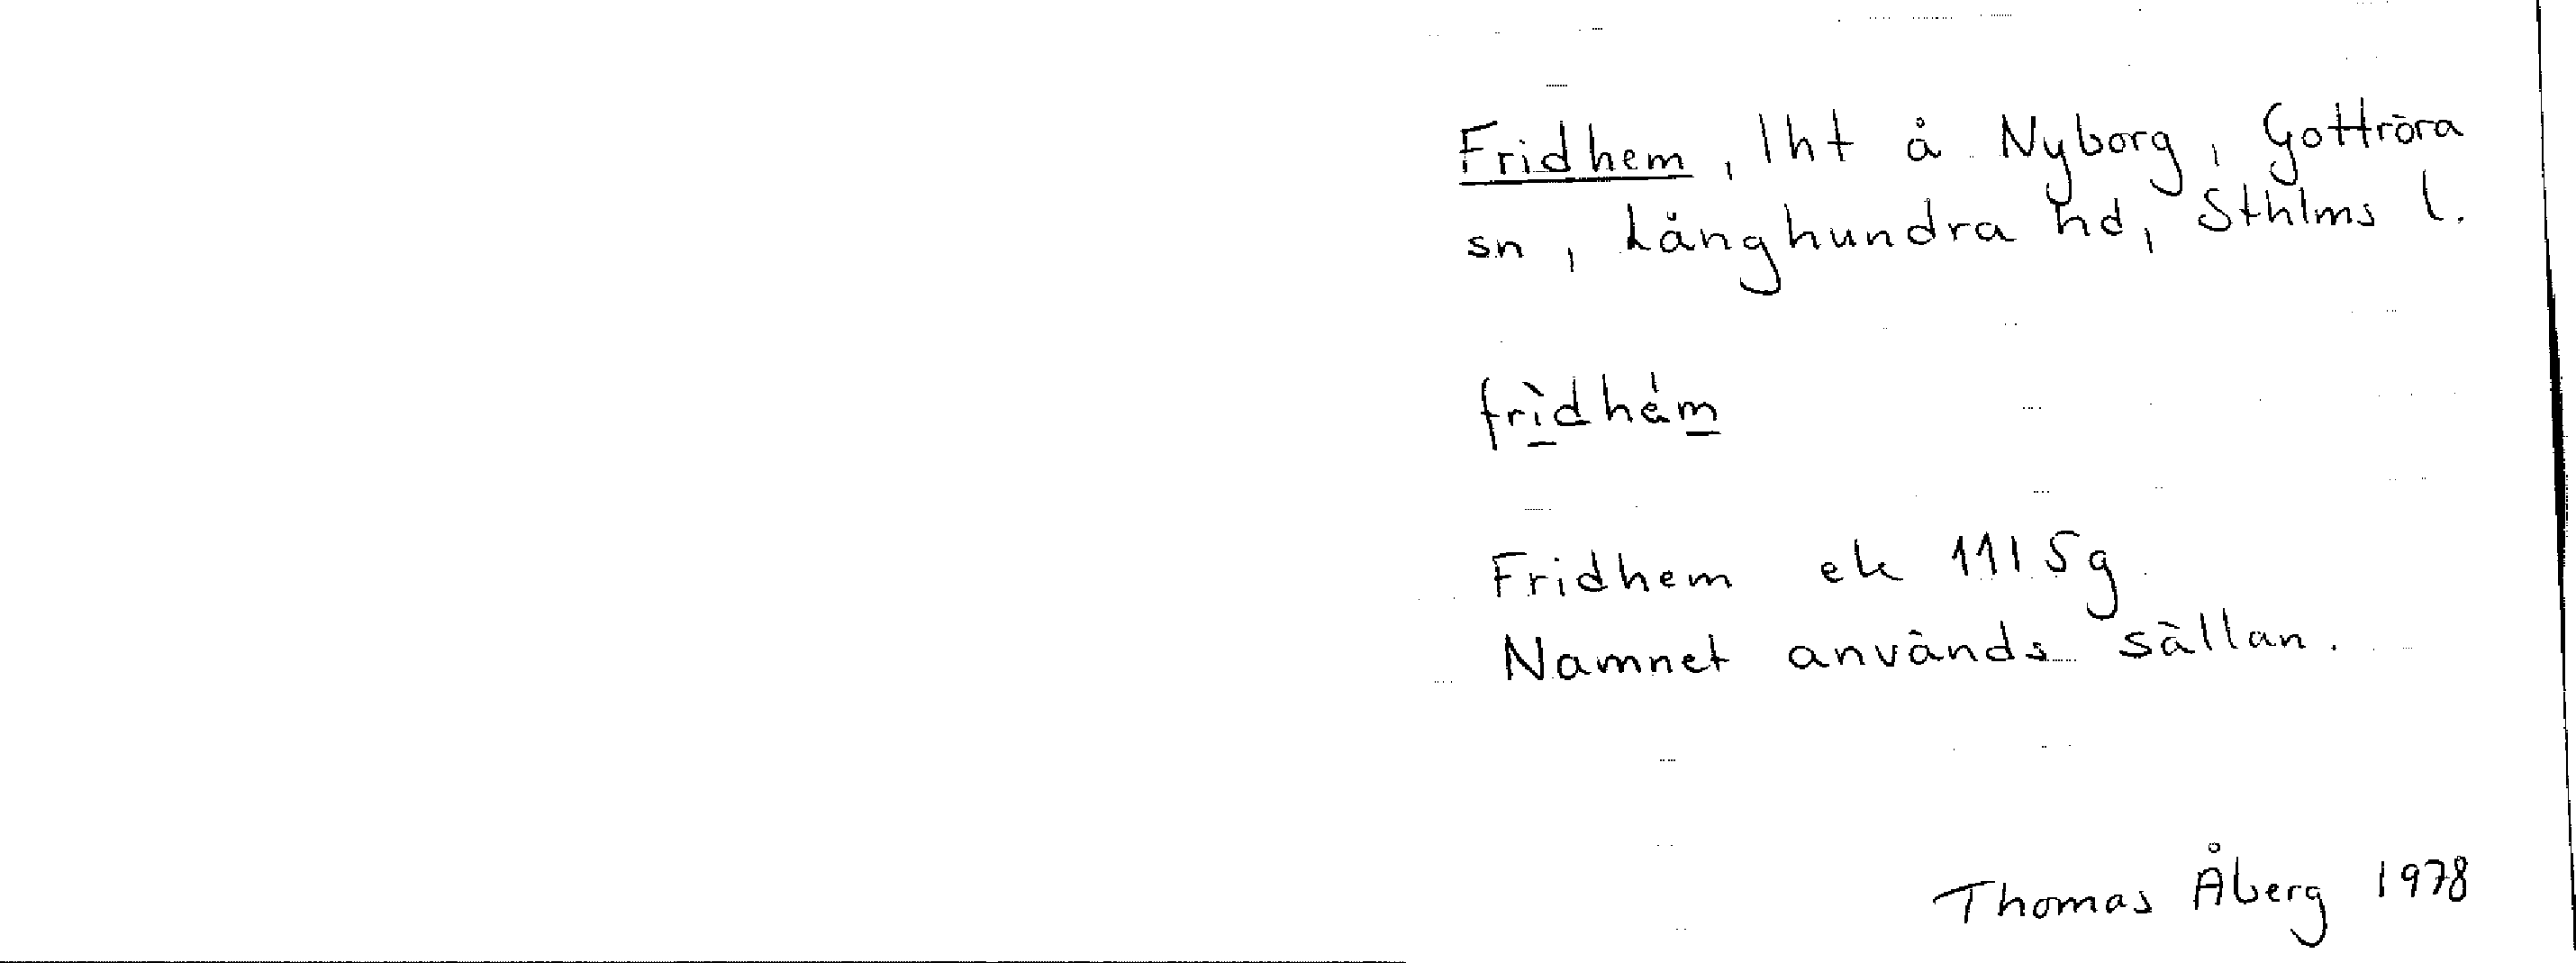 Fridhem, lht å Nyborg, Gottröra
sn, Långhundra hd, Sthlms l.
frìdhém
Fridhem ek 11I5g
Namnet används sällan.
Thomas Åberg 1978